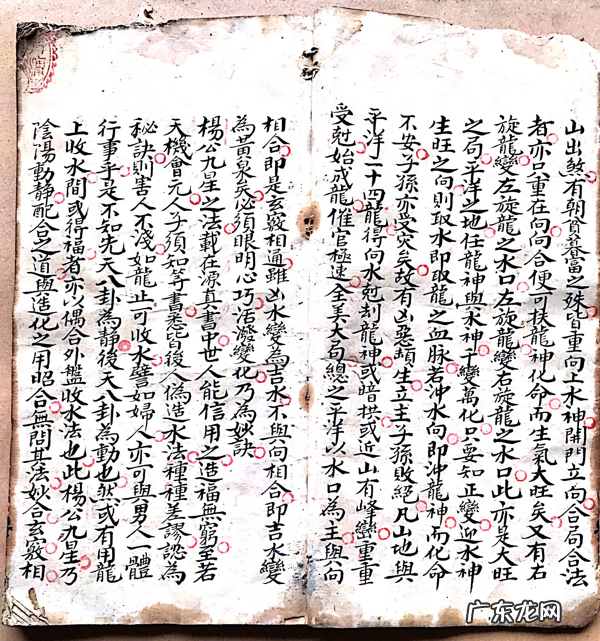 山出煞有朝貧暮富之殊皆重向上水神開門立向合局合法
者亦只重在向向合便可扶龍神化命而生氣大旺矣又有右
旋龍變左旋龍之水口左旋龍變右旋龍之水口此亦是大旺
之局平洋之地任龍神與水神千變萬化只要知正變迎水神
生旺之向則取水即取龍之血脉若冲水向即冲龍神而化命
不安子孫亦受灾矣故有凶惡頑生立主子孫敗絕凡山地與
平洋二十四龍得向水尅制龍神或暗拱或近山有峰巒重重
受尅始成龍催官極速全美大局總之平洋以水口為主與向
相合即是玄竅相通雖凶水變為吉水不與向相合即吉水變
為黃泉矣必須眼明心巧活潑變化乃為妙訣
楊公九星之法載在源真書中世人能信用之造福無窮至若
天機會元人子須知等書悉皆後人偽造水法種種差謬認為
秘訣則害人不淺如龍止可收水譬如婦人亦可與男人一體
行事乎是不知先天八卦為靜後天八卦為動也然或有用龍
上收水間或得福者亦以偶合外盤收水法也此楊公九星乃
陰陽動靜配合之道與造化之用昭合無間其法妙合玄竅相
广东龙网